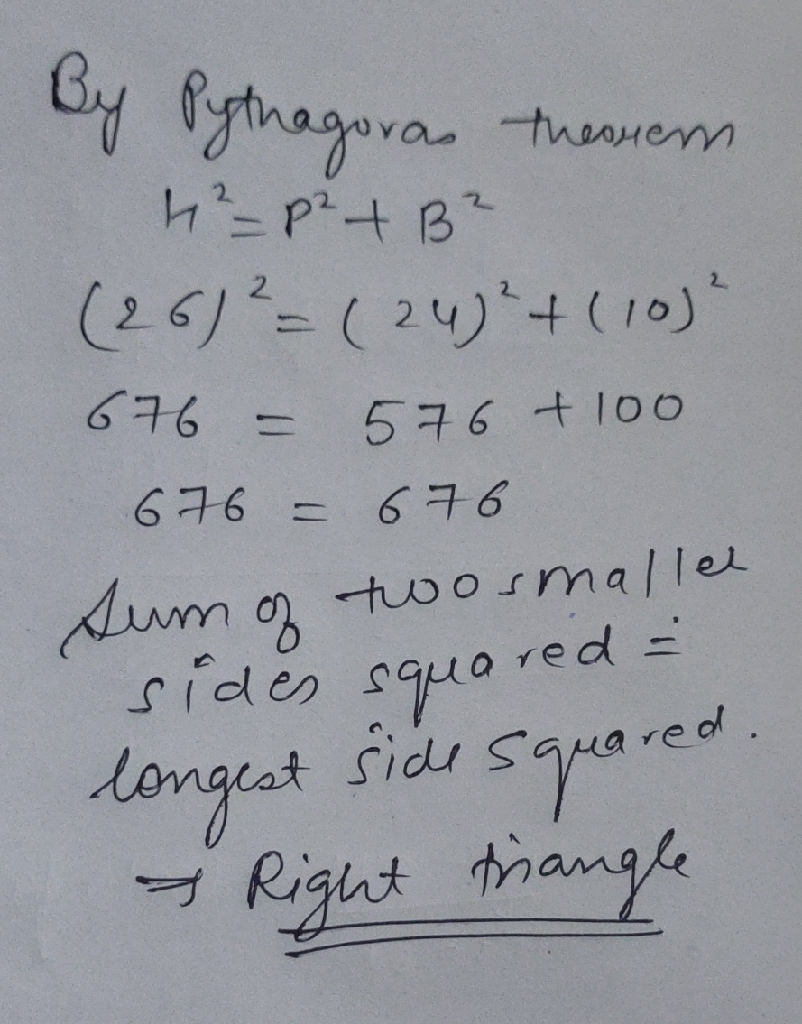 By Pythagoras theorem
h² = P² + B²
(26)² = (24)² + (10)²
676 = 576 + 100
676 = 676
Sum of two smaller
sides squared =
longest side squared.
→ Right triangle